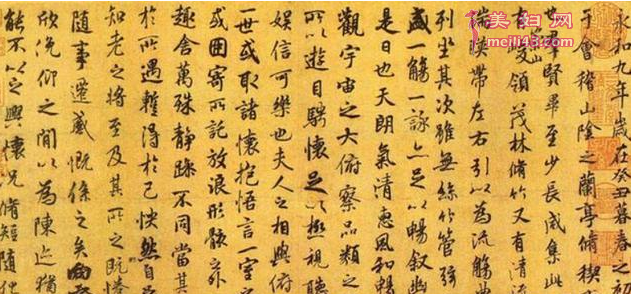 永和九年歲在癸丑暮春之初
于會稽山陰之蘭亭脩稧
也群賢畢至少長咸集此
有崇山峻領茂林脩竹又有清流
湍帶左右引以為流觴曲
列坐其次雖無絲竹管弦
盛一觴一詠亦足以暢敘幽
是日也天朗氣清惠風和暢
觀宇宙之大俯察品類之
所以遊目騁懷足以極視聽
娛信可樂也夫人之相與俯
一世或取諸懷抱悟言一室之
或因寄所託放浪形骸之外
趣舍萬殊靜躁不同當其
於所遇蹔得於己怏然自
知老之將至及其所之既惓
隨事遷感慨係之矣向
欣俛仰之閒以為陳迹猶
能不以之興懷況脩短隨化
www.meili43.com